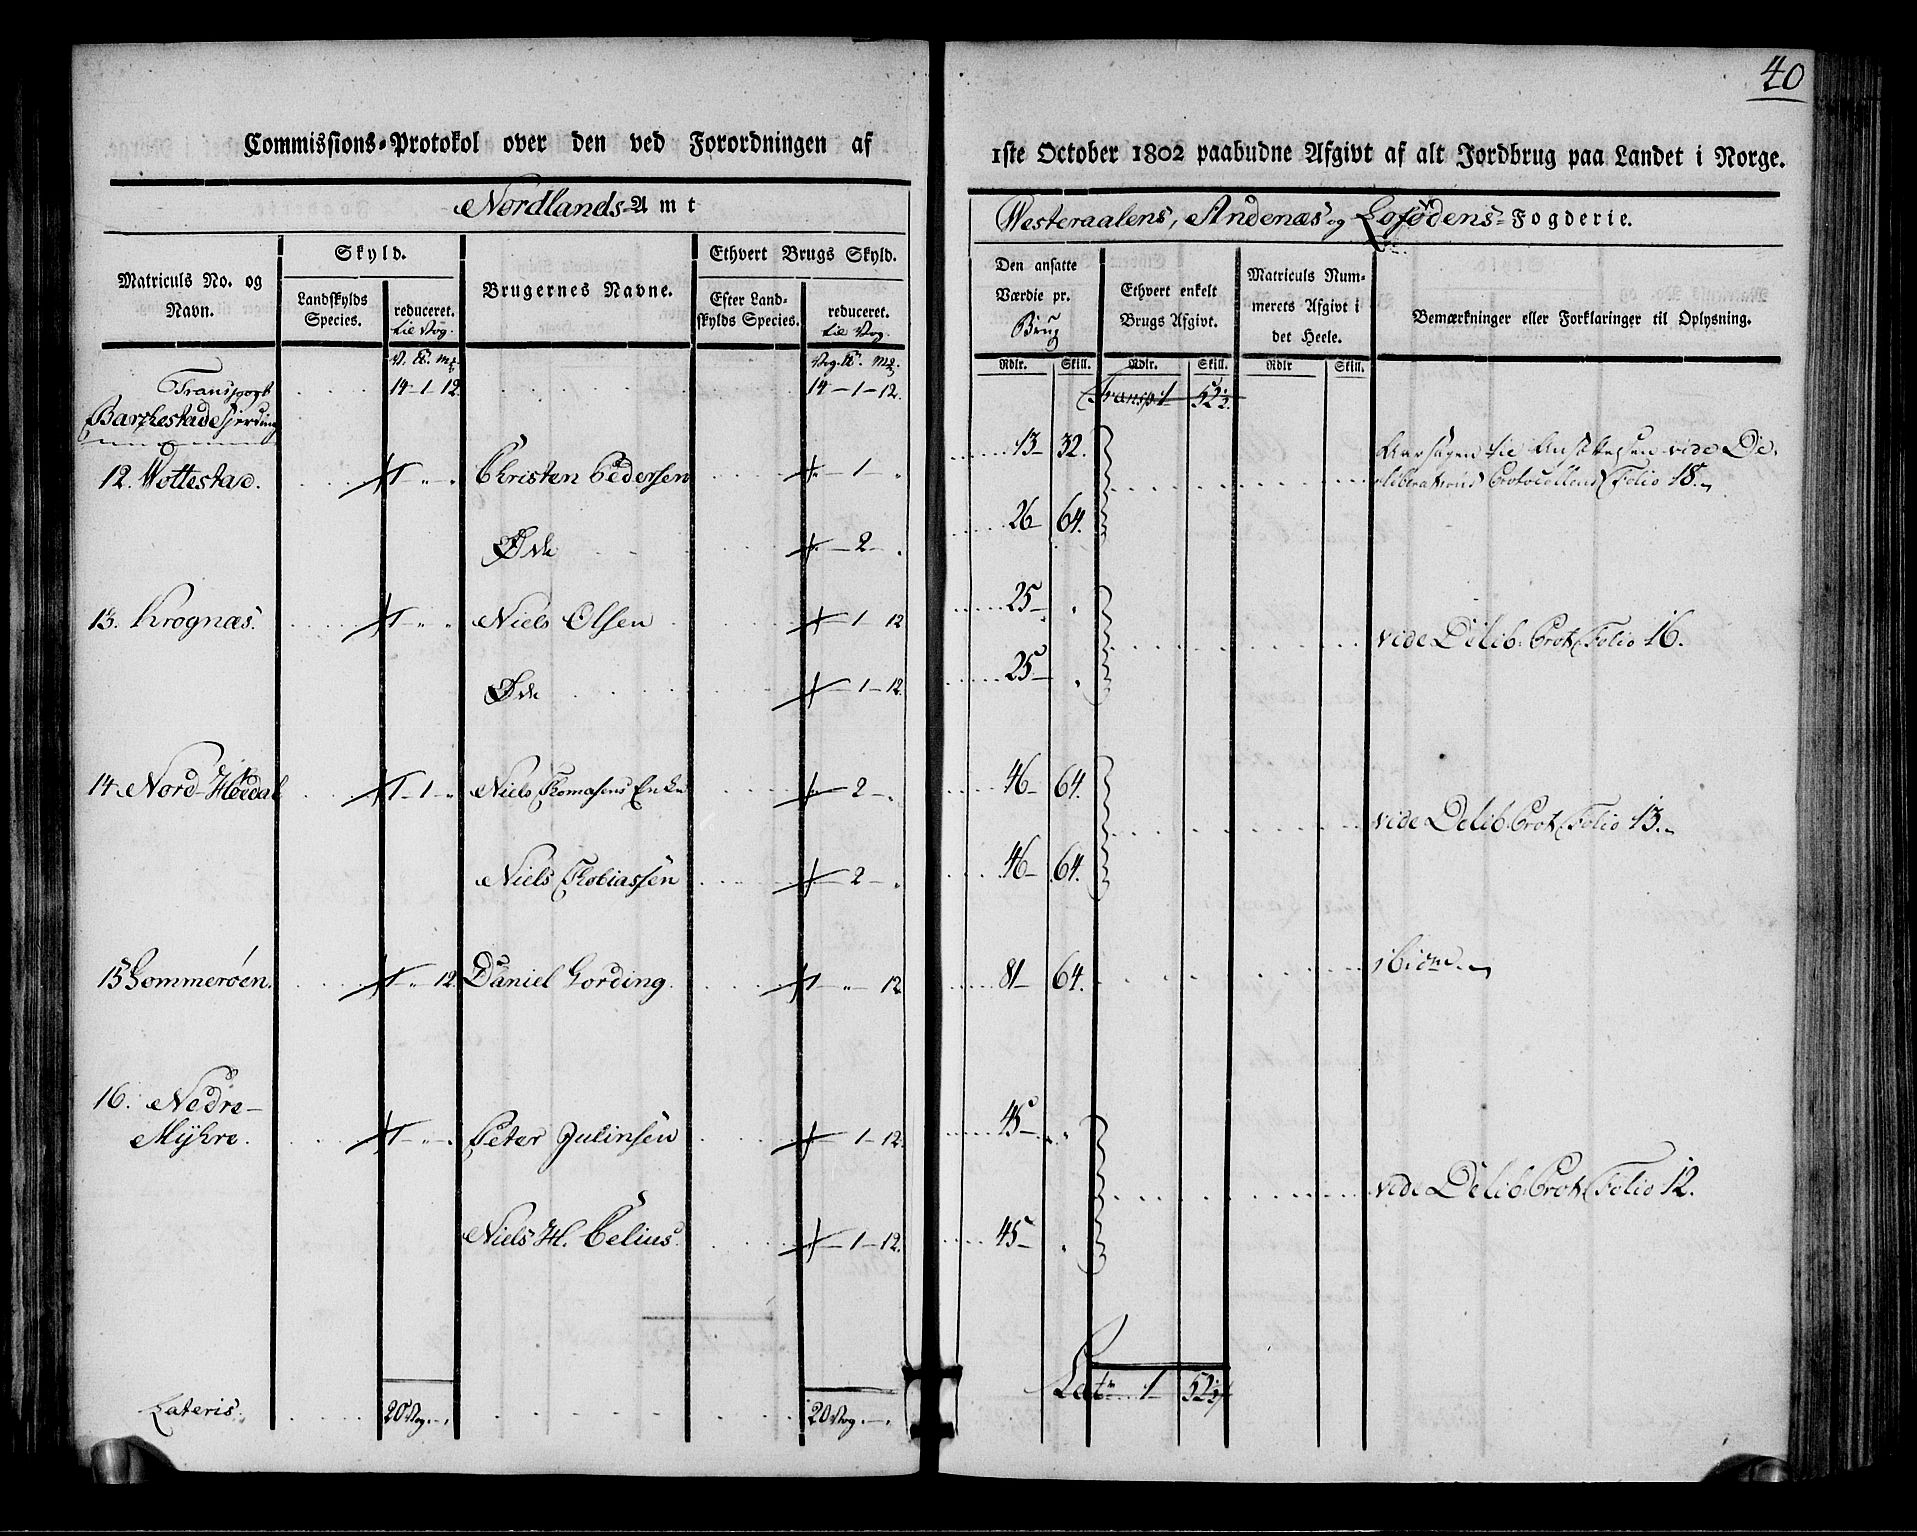 40
Commissions-Protokol over den ved Forordningen af
1ste October 1802 paabudne Afgivt af alt Jordbrug paa Landet i Norge.
Nordlands-Amt
Westeraalens, Andenæs og Lofodens-Fogderie.
Matriculs No. og Navn.
Skyld.
Landskylds Species.
reduceret. til Vog.
Brugernes Navne.
Ethvert Brugs Skyld.
Efter Landskylds Species.
reduceret. til Vog
Den ansatte Værdie pr. Brug
Ethvert enkelt Brugs Afgivt.
Matriculs Nummerets Afgivt i det Heele.
Bemærkninger eller Forklaringer til Oplysning.
Rdlr. Skill. Rdlr. Skill. Rdlr Skill.
Transport 14-1-12. 14-1-12. Transp: 1 52½
Barkestad Fjerding
12. Vottestad. 1 " " Christen Pedersen - 1 - " 13- 32. Aarsagen til Ansættelsen vide De-
liberations Protocollens Folio 18.
Øde - 2 - 26- 64.
13. Krognæs. 1 " " Niels Olsen - 1 - 12. 25- " vide Delib: Prot. Folio 16.
Øde - 1 - 12. 25- "
14. Nord-Høedal 1 - 1 - " Niels Thomasens Enke - 2 - " 46- 64. vide Delib: Prot. Folio 13.
Niels Tobiassen - 2 - " 46- 64.
15 Sommerøen. 1 " 12 Daniel Gording 1 " 12 81- 64. ibidm
16. Nedre-
Myhre. 1 - " - Peter Julinsen - 1 - 12. 45- " vide Delib: Prot. Folio 12.
Niels H. Celius. - 1 - 12. 45- "
Lateris. 20 Vog. 20 Vog. Lat: 1 52½